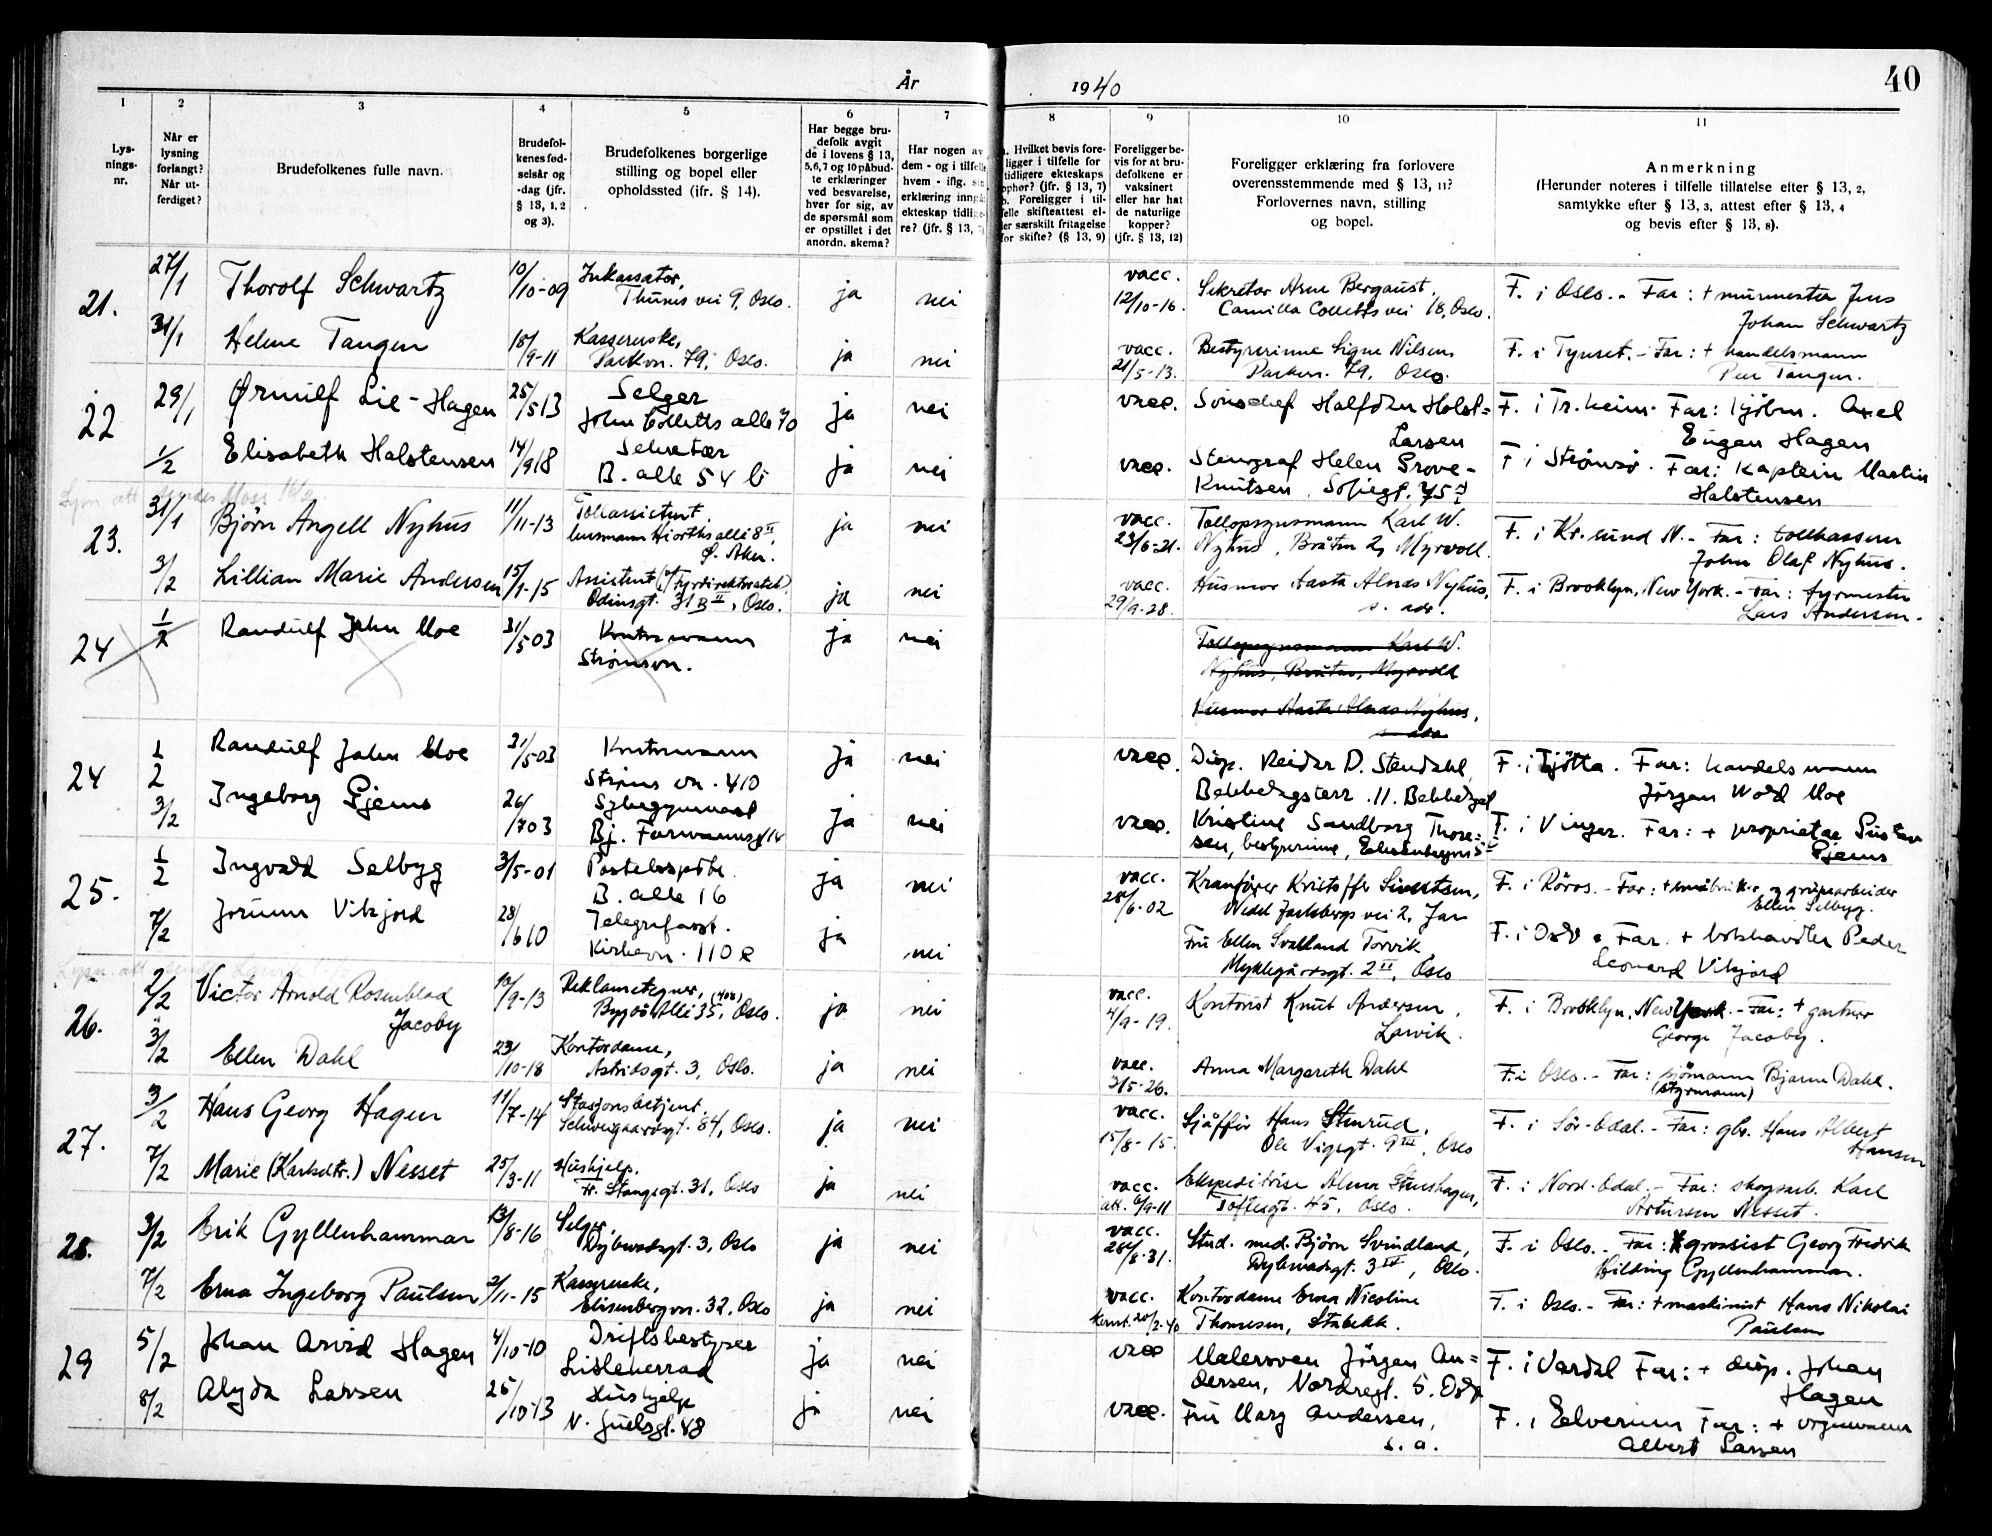 År 1940
40
1 2 3 4 5 6 7 8 9 10 11
Lys-
nings-
nr.
Når er
lysning
forlangt?
Når ut-
ferdiget?
Brudefolkenes fulle navn.
Brudefol-
kenes fød-
selsår og
-dag (jfr.
§ 13, 1, 2
og 3).
Brudefolkenes borgerlige
stilling og bopel eller
opholdssted (ifr. § 14).
Har begge bru-
defolk avgit
de i lovens § 13,
5,6,7 og 10 påbud-
te erklæringer
ved besvarelse,
hver for sig, av
de spørsmål som
er opstillet i det
anordn. skema?
Har nogen av
dem - og i tilfelle
hvem - iflg.
erklæring inngå
ekteskap tidlige-
re? (jfr. § 13,
Hvilket bevis fore-
ligger i tilfelle for
tidligere ekteskaps
ophør? (jfr. § 13, 7)
b. Foreligger i til-
felle skifteattest el-
ler særskilt fritagelse
for skifte? (§ 13, 9)
Foreligger be-
vis for at bru-
defolkene er
vaksinert
eller har hat
de naturlige
kopper?
(jfr. § 13, 12)
Foreligger erklæring fra forlovere
overensstemmende med § 13, 11?
Forlovernes navn, stilling
og bopel.
Anmerkning
(Herunder noteres i tilfelle tillatelse efter § 13, 2,
samtykke efter § 13, 3, attest efter § 13, 4
og bevis efter § 13, 8).
21. 27/1 Thorolf Schwartz 10/10-09 Inkassator, ja nei vacc. Sekretær Arne Bergaust, F. i Oslo. - Far: + murmester Jens
Thunes vei 9, Oslo. 12/10-16. Camilla Colletts vei 18, Oslo. Johan Schwartz
31/1 Helene Tangen 18/9-11 Kassererske, ja nei vacc. Bestyrerinne Signe Nilsen F. i Tynset. - Far: + handelsmann
Parkvn. 79, Oslo. 21/5-13. Parkvn. 79, Oslo. Peer Tangen.
22 29/1 Ørnulf Lie-Hagen 25/5 13 Selger ja nei vacc. Halfdan Holst- F. i Tr.heim. Far: kjøbm. Axel
John Colletts alle 70 Larsen Eugen Hagen
1/2 Elisabeth Halstensen 14/9 18 Sekretær ja nei vacc. Stenograf Helen Prove- F i Strømsø. Far: Kaptein Martin
B. alle 54 b Knutsen, Sofiegt. 75 Halstensen
23. 31/1 Björn Angell Nyhus 11/11-13 Tollassistent ja nei vacc. Tollopsynsmann Karl W. F. i Kr.sund N. - Far: tollkasserer
Husmann Hiorths alle 8 II, 23/6-21. Nyhus, Bråten 2, Myrvoll. John Olaf Nyhus.
Ø. Aker.
3/2 Lillian Marie Andersen 15/1-15 Assistent (v/fyrdirektoratet) ja nei vacc. Husmor Aasta Alnæs Nyhus, F. i Brooklyn, New York. - Far: fyrmester
Odinsgt. 31 B II, Oslo. 29/9-28. s. adr. Lars Andersen.
24 1/2 Randulf John Moe 31/5 03 Kontormann ja nei Tollopsynsmann Karl W.
Strømsvn. Nyhus, Bråten, Myrvold
Husmor Aasta Alnæs Nyhus,
s. adr.
24 1/2 Randulf John Moe 31/5 03 Kontormann ja nei vacc. Disp. Reidar D. Stendahl, F. i Tjøtta. Far: handelsmann
Strøms vn. 410 Bekkelagsterr. 11. Bekkelaget Jørgen Wold Moe
3/2 Ingeborg Gjems 26/7 03 ja nei vacc. Kristine Sandborg Thore- F. i Vinger. Far: + proprietær Gustav
Bj. Farmannsgt 14 sen, bestyrerinne, Eckersbergvn 5 Gjems
25. 1/2 Ingvald Selbyg 3/5-01 ja nei vacc. Kranfører Kristoffer Sivertsen, F. i Röros. - Far: + småbruker og gruvearbeider
B. alle 16 28/6-02 Wedel Jarlsbergs vei 2, Jar Ellen Selbyg.
7/2 Jorunn Vikjord 28/6 10 Telegrafasst. ja nei Fru Ellen Svalland Torvik F. i Oslo. Far. + bokhandler Peder
Kirkevn. 110 e Myklegårdsgt. 2 II, Oslo Leonard Vikjord
26. 2/2 Victor Arnold Rosenblad 10/9-13 Reklametegner, ja nei vacc. Kontorist Knut Andersen, F. i Brooklyn, New York. - Far: + gartner
Jacoby Bygdö Allé 35, (408) Oslo. 4/9-19. Larvik. George Jacoby.
3/2 Ellen Dahl 23/10-18 Kontordame, ja nei vacc. Anna Margareth Dahl F. i Oslo. - Far: sjömann Bjarne Dahl.
Astridsgt. 3, Oslo. 3/5-26. (styrmann)
27. 3/2 Hans Georg Hagen 11/7-14 Stasjonsbetjent ja nei vacc. Sjåffør Hans Stenrud, F. i Sör-Odal. - Far: gbr. Hans Albert
Schweigaardsgt. 84, Oslo. 15/8-15. Ole Vigsgt. 9 III, Oslo Hansen
7/2 Marie (Karlsdtr.) Nesset 25/3-11 Hushjelp, ja nei vacc. Ekspeditrise Alma Stenshagen, F. i Nord-Odal. - Far: skogsarb. Karl
Fr. Stangsgt. 31, Oslo att. 6/9-11 Toftesgt. 45, Oslo. Artursen Nesset.
28. 3/2 Erik Gyllenhammar 13/8-16 Selger, ja nei vacc. Stud. med. Björn Svindland, F. i Oslo. - Far: grossist Georg Fredrik
Dybwadsgt. 3, Oslo 28/8-31. Dybwadsgt. 3 IV, Oslo. Hilding Gyllenhammar.
7/2 Erna Ingeborg Paulsen 2/11-15 Kassererske, ja nei vacc. Kontordame Erna Nicoline F. i Oslo. - Far: + maskinist Hans Nikolai
Elisenbergvn. 32, Oslo 20/2-40 Thomesen, Stabekk. Paulsen
29 5/2 Johan Arvid Hagen 4/10-10 Driftsbestyrer ja nei vacc Malersven Jörgen An- F. i Vardal Far: + disp. Johan
Lislenerrad dersen, Nordregt. 5. Oslo Hagen
8/2 Alyda Larsen 25/10 13 Hushjelp ja nei vacc. Fru Marg Andersen, F. i Elverum Far: + vognmann
N. Juelsgt. 48 s. a. Albert Larsen